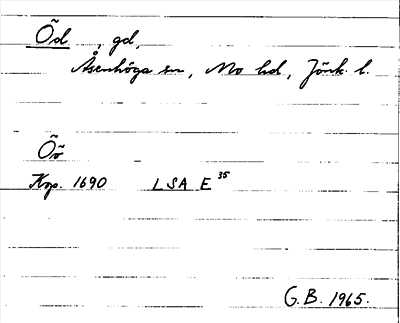 Õd, gd,
Åsenhöga sn, Mo hd, Jönk. l.
Õõ
Kop. 1690 LSA E 35
G.B. 1965.